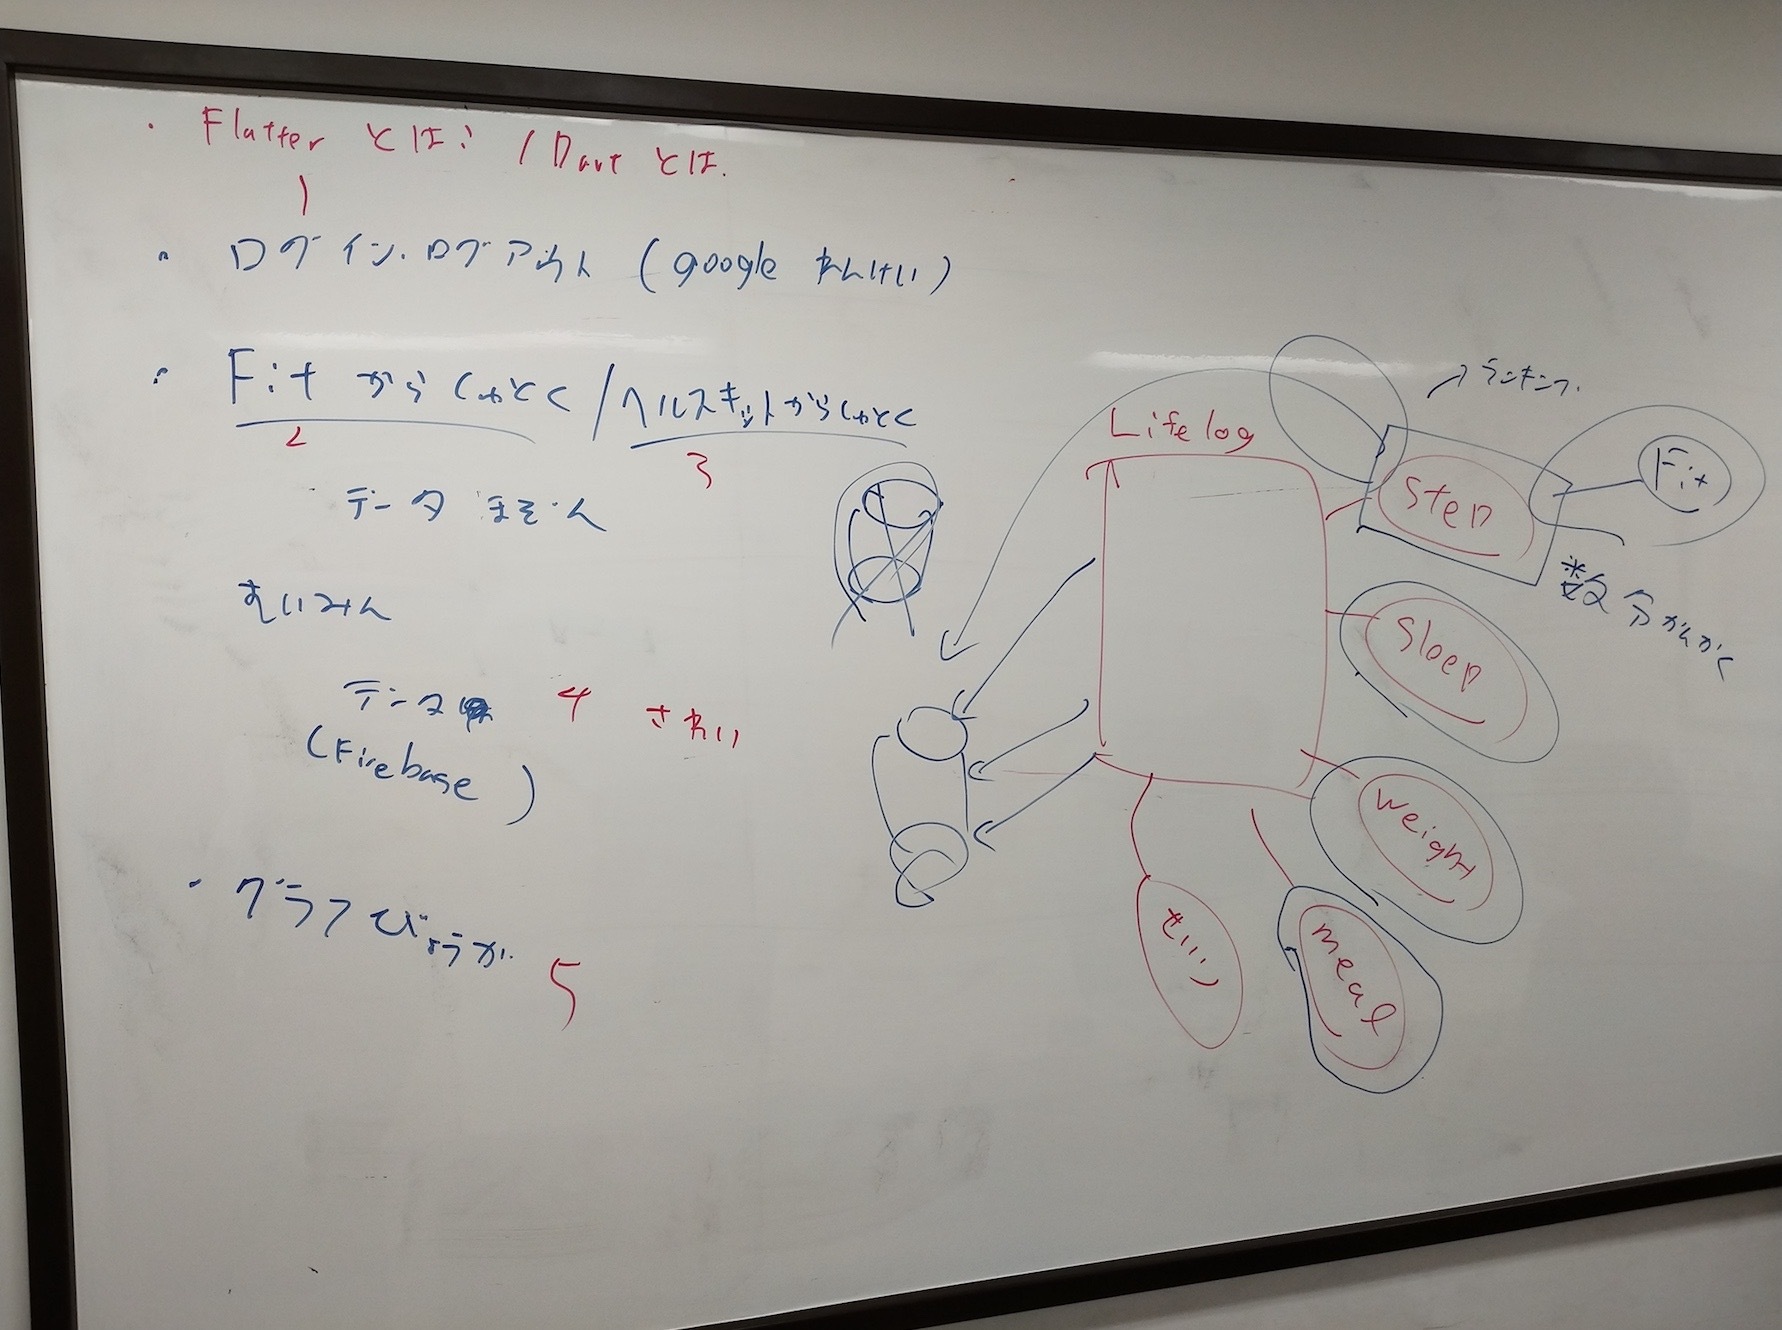 ・Flutter とは? / Dart とは.
1
・ログイン・ログアウト (google れんけい)
・Fit からしゅとく / ヘルスキットからしゅとく
2
3
データ ほぞん
すいみん
データ
4 されい
(Firebase)
・グラフびょうが
5
Lifelog
→ランキング
step
Fit
数分かんかく
Sleep
weight
meal